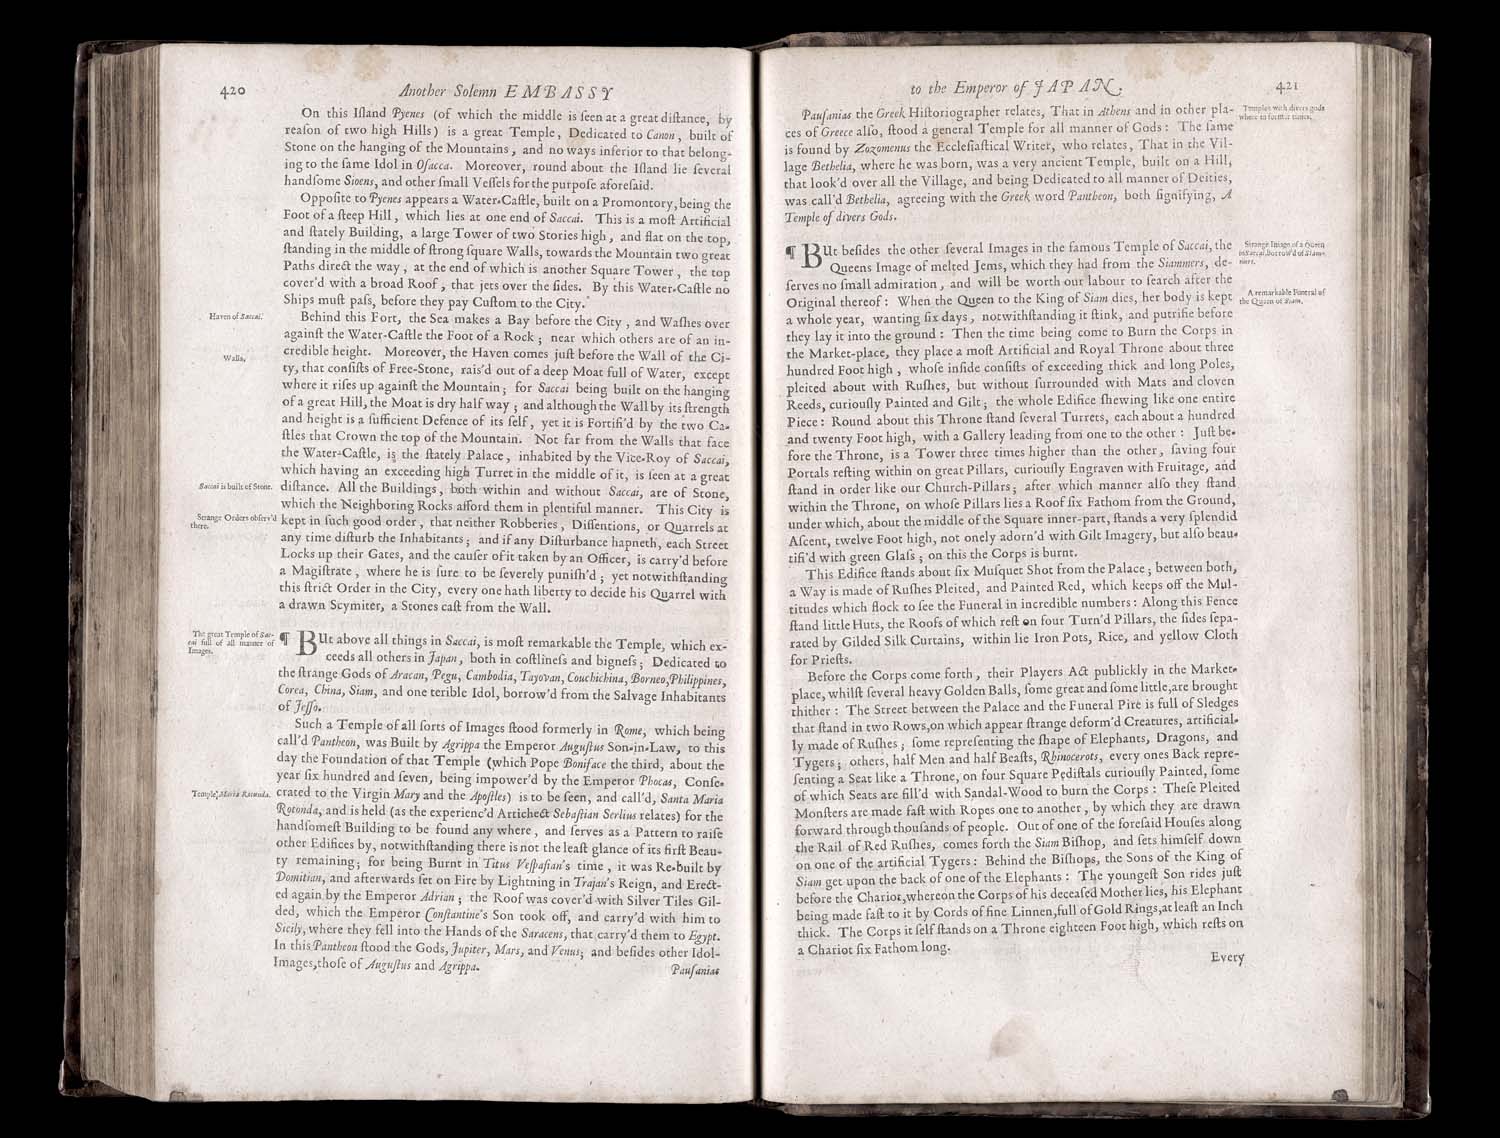 420
Another Solemn EMBASSY
On this Iſland Pyenes (of which the middle is ſeen at a great diſtance, by
reaſon of two high Hills) is a great Temple, Dedicated to Canon, built of
Stone on the hanging of the Mountains, and no ways inferior to that belong-
ing to the ſame Idol in Oſacca. Moreover, round about the Iſland lie ſeveral
handſome Sioens, and other ſmall Veſſels for the purpoſe aforeſaid.
Oppoſite to Pyenes appears a Water-Caſtle, built on a Promontory, being the
Foot of a ſteep Hill, which lies at one end of Saccai. This is a moſt Artificial
and ſtately Building, a large Tower of two Stories high, and flat on the top,
ſtanding in the middle of ſtrong ſquare Walls, towards the Mountain two great
Paths direct the way, at the end of which is another Square Tower, the top
cover'd with a broad Roof, that jets over the ſides. By this Water-Caſtle no
Ships muſt paſs, before they pay Cuſtom to the City.
Haven of Saccai.
Behind this Fort, the Sea makes a Bay before the City, and Waſhes over
againſt the Water-Caſtle the Foot of a Rock; near which others are of an in-
credible height. Moreover, the Haven comes juſt before the Wall of the Ci-
Walls,
ty, that conſiſts of Free-Stone, rais'd out of a deep Moat full of Water, except
where it riſes up againſt the Mountain; for Saccai being built on the hanging
of a great Hill, the Moat is dry half way; and although the Wall by its ſtrength
and height is a ſufficient Defence of its ſelf, yet it is Fortifi'd by the two Ca-
ſtles that Crown the top of the Mountain. Not far from the Walls that face
the Water-Caſtle, is the ſtately Palace, inhabited by the Vice-Roy of Saccai,
which having an exceeding high Turret in the middle of it, is ſeen at a great
Saccai is built of Stone.
diſtance. All the Buildings, both within and without Saccai, are of Stone,
which the Neighboring Rocks afford them in plentiful manner. This City is
Strange Orders obſerv'd
there.
kept in ſuch good order, that neither Robberies, Diſſentions, or Quarrels at
any time diſturb the Inhabitants; and if any Diſturbance hapneth, each Street
Locks up their Gates, and the cauſer of it taken by an Officer, is carry'd before
a Magiſtrate, where he is ſure to be ſeverely puniſh'd; yet notwithſtanding
this ſtrict Order in the City, every one hath liberty to decide his Quarrel with
a drawn Scymiter, a Stones caſt from the Wall.
The great Temple of Sac-
cai full of all manner of
Images.
¶ BUt above all things in Saccai, is moſt remarkable the Temple, which ex-
ceeds all others in Japan, both in coſtlineſs and bigneſs; Dedicated to
the ſtrange Gods of Aracan, Pegu, Cambodia, Tayovan, Couchichina, Borneo, Philippines,
Corea, China, Siam, and one terible Idol, borrow'd from the Salvage Inhabitants
of Jeſſo.
Such a Temple of all ſorts of Images ſtood formerly in Rome, which being
call'd Pantheon, was Built by Agrippa the Emperor Auguſtus Son-in-Law, to this
day the Foundation of that Temple (which Pope Boniface the third, about the
year ſix hundred and ſeven, being impower'd by the Emperor Phocas, Conſe-
Temple, Maria Rotunda.
crated to the Virgin Mary and the Apoſtles) is to be ſeen, and call'd, Santa Maria
Rotonda, and is held (as the experienc'd Artichect Sebaſtian Serlius relates) for the
handſomeſt Building to be found any where, and ſerves as a Pattern to raiſe
other Edifices by, notwithſtanding there is not the leaſt glance of its firſt Beau-
ty remaining; for being Burnt in Titus Veſpaſian's time, it was Re-built by
Domitian, and afterwards ſet on Fire by Lightning in Trajan's Reign, and Erect-
ed again by the Emperor Adrian; the Roof was cover'd with Silver Tiles Gil-
ded, which the Emperor Conſtantine's Son took off, and carry'd with him to
Sicily, where they fell into the Hands of the Saracens, that carry'd them to Egypt.
In this Pantheon ſtood the Gods, Jupiter, Mars, and Venus; and beſides other Idol-
Images, thoſe of Auguſtus and Agrippa.
Pauſanias
to the Emperor of JAPAN.
421
Pauſanias the Greek Hiſtoriographer relates, That in Athens and in other pla-
ces of Greece alſo, ſtood a general Temple for all manner of Gods: The ſame
Temples with divers gods
where in former times.
is found by Zozomenus the Eccleſiaſtical Writer, who relates, That in the Vil-
lage Bethelia, where he was born, was a very ancient Temple, built on a Hill,
that look'd over all the Village, and being Dedicated to all manner of Deities,
was call'd Bethelia, agreeing with the Greek word Pantheon, both ſignifying, A
Temple of divers Gods.
¶ BUt beſides the other ſeveral Images in the famous Temple of Saccai, the
Queens Image of melted Jems, which they had from the Siammers, de-
Strange Image of a Queen
in Saccai, borrow'd of Siam-
mers.
ſerves no ſmall admiration, and will be worth our labour to ſearch after the
Original thereof: When the Queen to the King of Siam dies, her body is kept
A remarkable Funeral of
the Queen of Siam.
a whole year, wanting ſix days, notwithſtanding it ſtink, and putrifie before
they lay it into the ground: Then the time being come to Burn the Corps in
the Market-place, they place a moſt Artificial and Royal Throne about three
hundred Foot high, whoſe inſide conſiſts of exceeding thick and long Poles,
pleited about with Ruſhes, but without ſurrounded with Mats and cloven
Reeds, curiouſly Painted and Gilt; the whole Edifice ſhewing like one entire
Piece: Round about this Throne ſtand ſeveral Turrets, each about a hundred
and twenty Foot high, with a Gallery leading from one to the other: Juſt be-
fore the Throne, is a Tower three times higher than the other, ſaving four
Portals reſting within on great Pillars, curiouſly Engraven with Fruitage, and
ſtand in order like our Church-Pillars; after which manner alſo they ſtand
within the Throne, on whoſe Pillars lies a Roof ſix Fathom from the Ground,
under which, about the middle of the Square inner-part, ſtands a very ſplendid
Aſcent, twelve Foot high, not onely adorn'd with Gilt Imagery, but alſo beau-
tifi'd with green Glaſs; on this the Corps is burnt.
This Edifice ſtands about ſix Muſquet Shot from the Palace; between both,
a Way is made of Ruſhes Pleited, and Painted Red, which keeps off the Mul-
titudes which flock to ſee the Funeral in incredible numbers: Along this Fence
ſtand little Huts, the Roofs of which reſt on four Turn'd Pillars, the ſides ſepa-
rated by Gilded Silk Curtains, within lie Iron Pots, Rice, and yellow Cloth
for Prieſts.
Before the Corps come forth, their Players Act publickly in the Market-
place, whilſt ſeveral heavy Golden Balls, ſome great and ſome little, are brought
thither: The Street between the Palace and the Funeral Pire is full of Sledges
that ſtand in two Rows, on which appear ſtrange deform'd Creatures, artificial-
ly made of Ruſhes; ſome repreſenting the ſhape of Elephants, Dragons, and
Tygers; others, half Men and half Beaſts, Rhinocerots, every ones Back repre-
ſenting a Seat like a Throne, on four Square Pediſtals curiouſly Painted, ſome
of which Seats are fill'd with Sandal-Wood to burn the Corps: Theſe Pleited
Monſters are made faſt with Ropes one to another, by which they are drawn
forward through thouſands of people. Out of one of the foreſaid Houſes along
the Rail of Red Ruſhes, comes forth the Siam Biſhop, and ſets himſelf down
on one of the artificial Tygers: Behind the Biſhops, the Sons of the King of
Siam get upon the back of one of the Elephants: The youngeſt Son rides juſt
before the Chariot, whereon the Corps of his deceaſed Mother lies, his Elephant
being made faſt to it by Cords of fine Linnen, full of Gold Rings, at leaſt an Inch
thick. The Corps it ſelf ſtands on a Throne eighteen Foot high, which reſts on
a Chariot ſix Fathom long.
Every